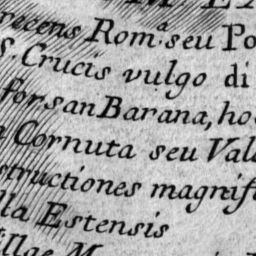 recens Rom.ᵃ seu Po
S. Crucis vulgo di
forsan Barana, ho
Cornuta seu Vale
structiones magnifi
lla Estensis
illae M